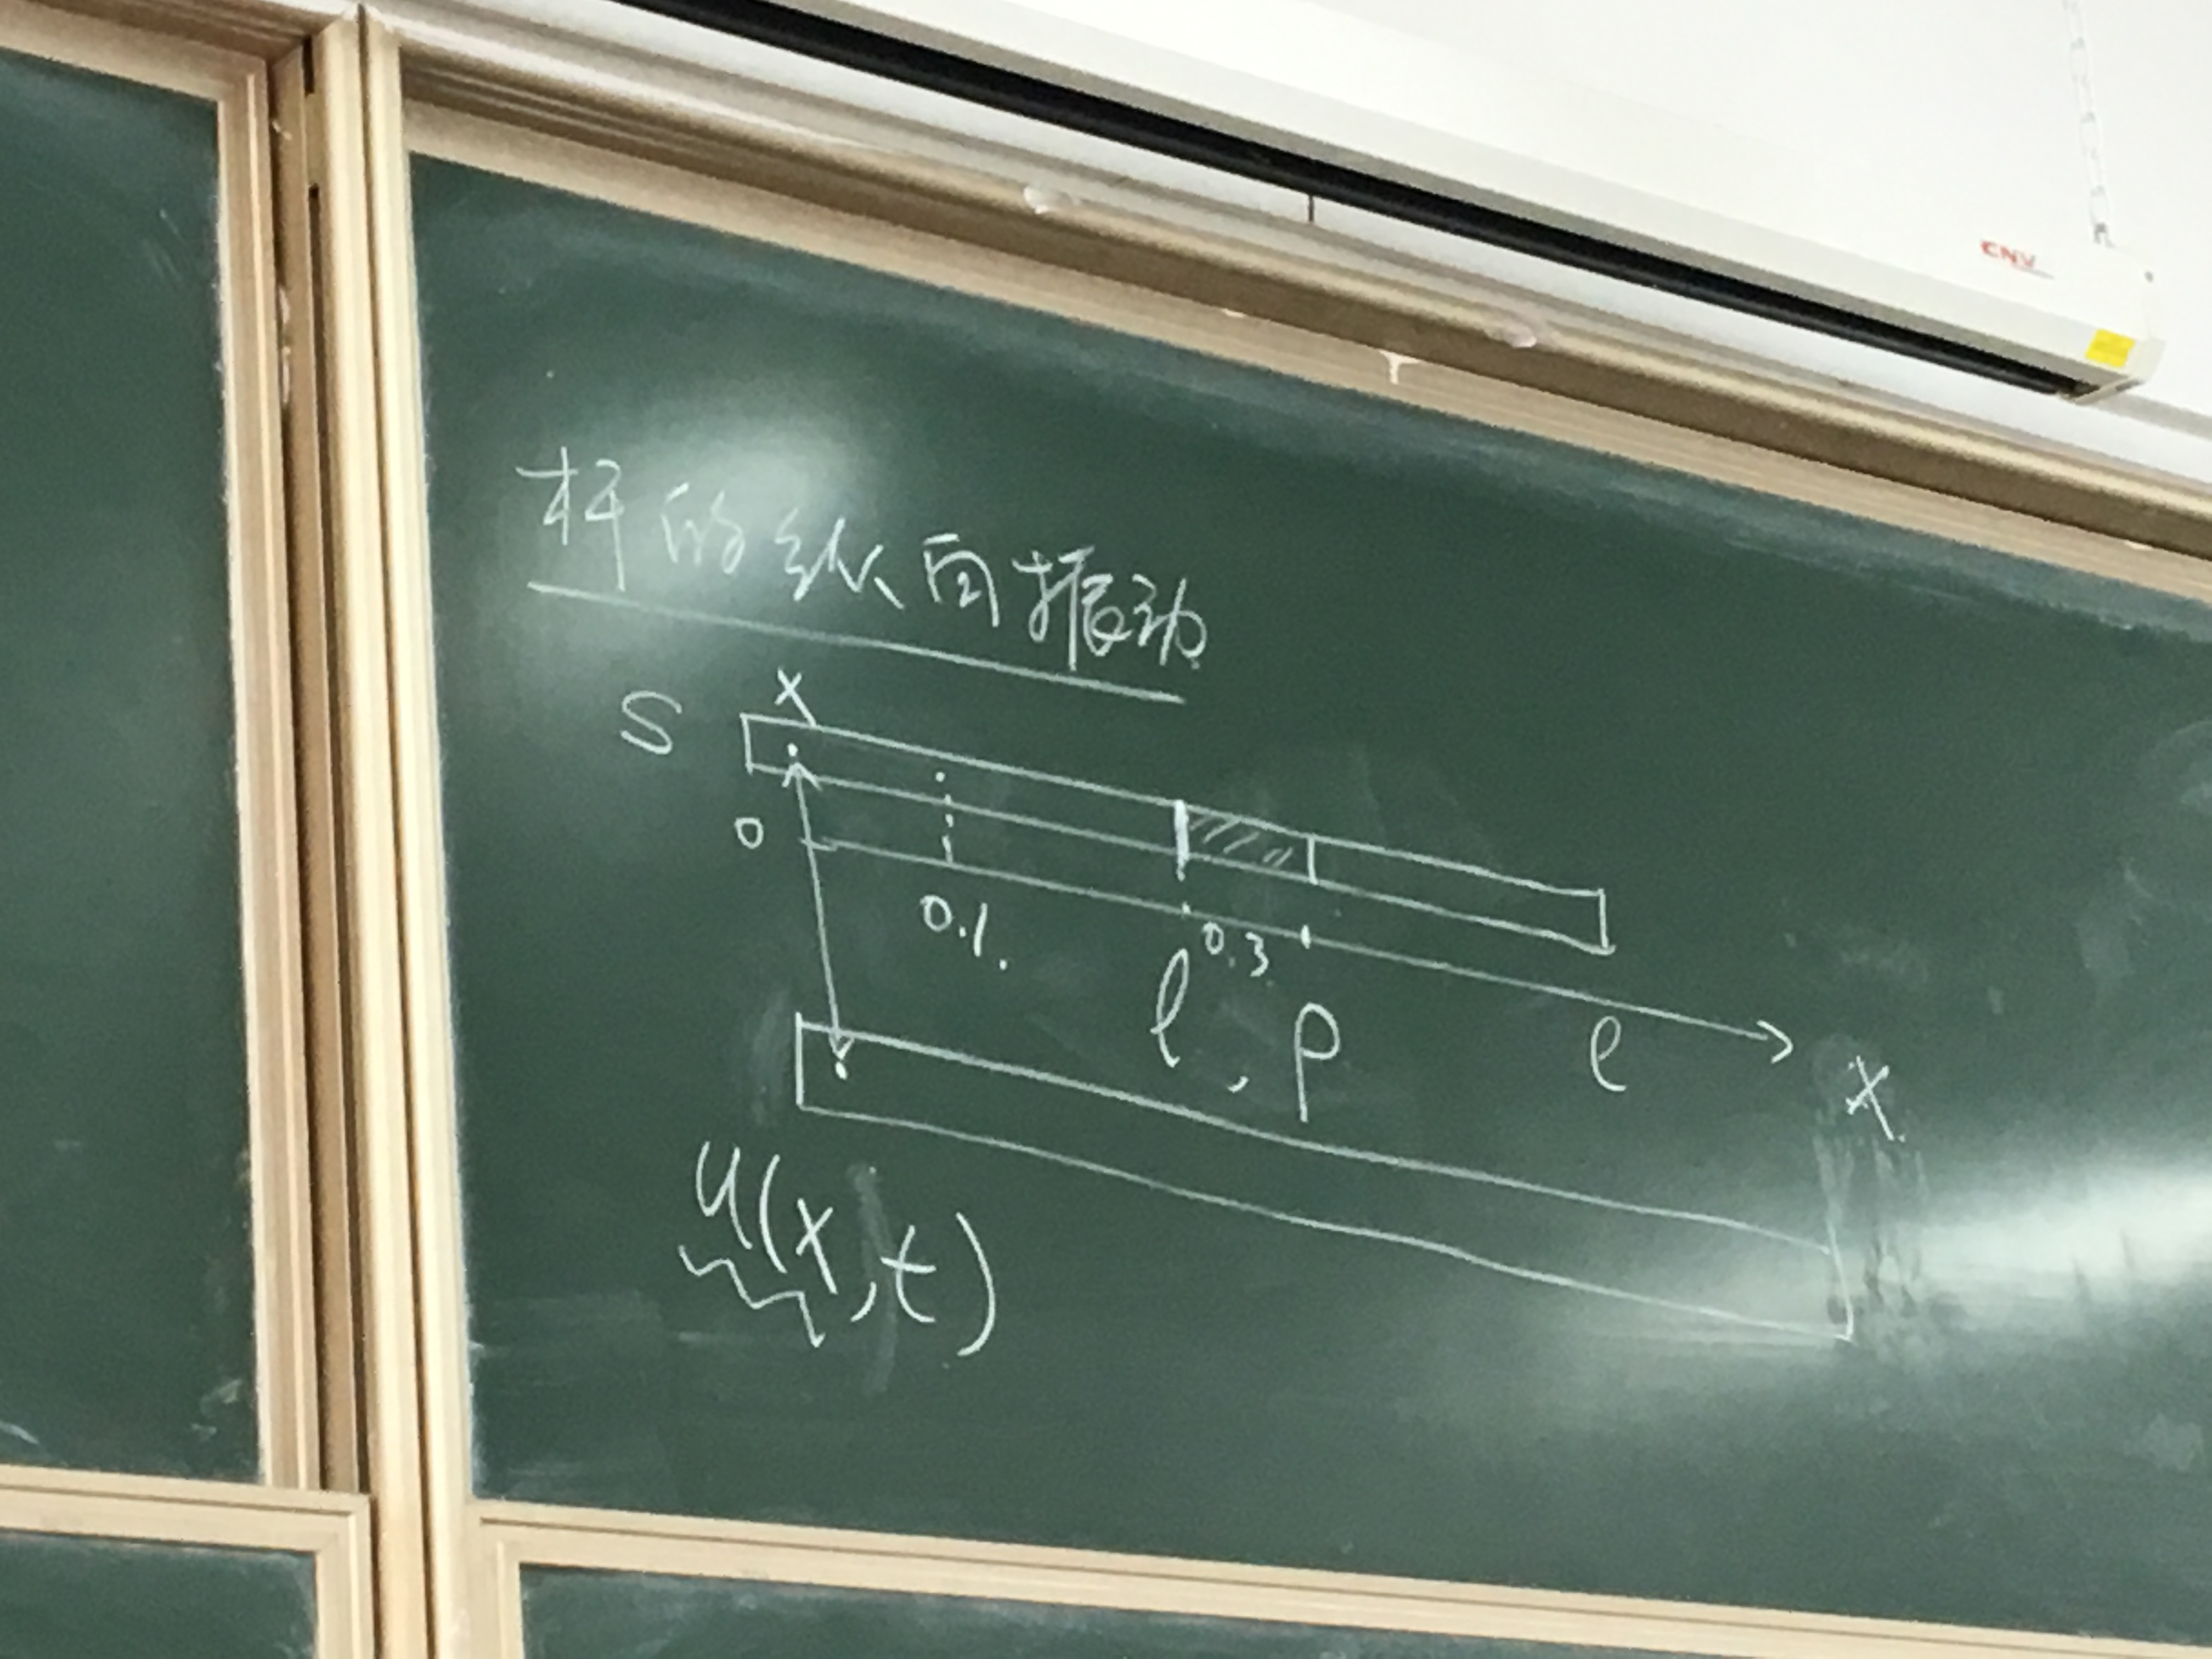 CNV
杆的纵向振动
S x
0
0.1.
0.3
l, ρ
l
x
u(x,t)